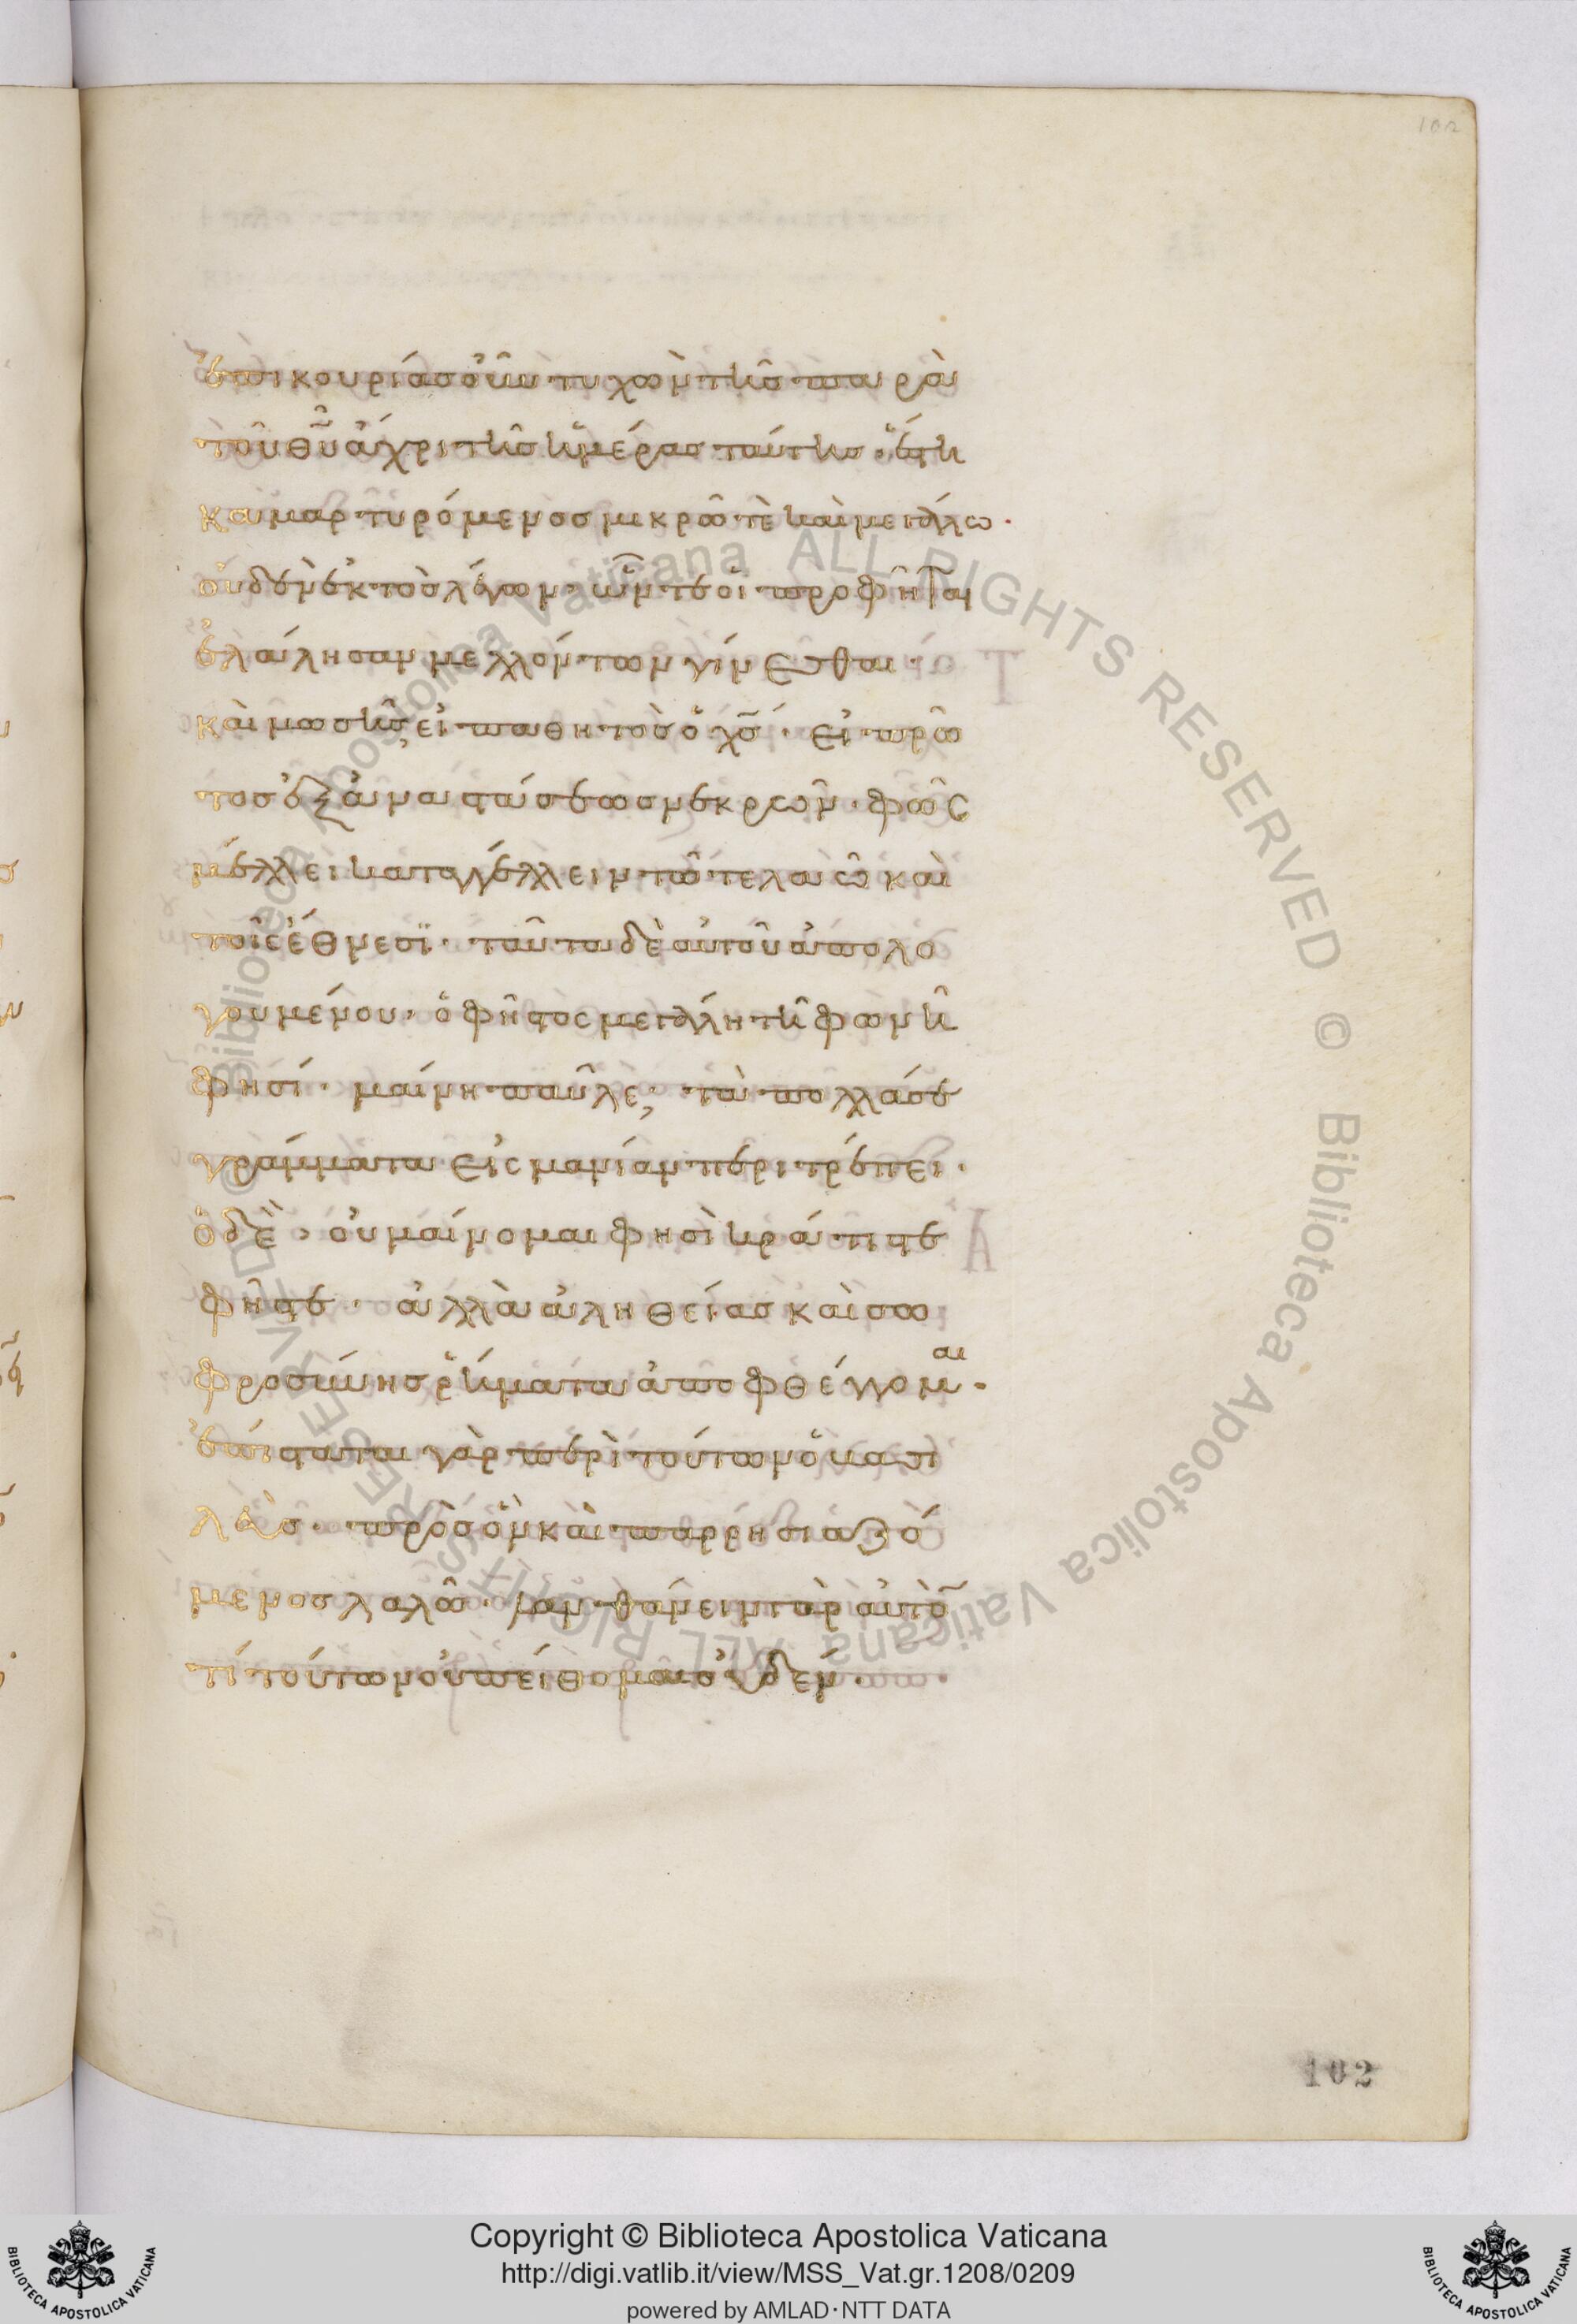 ἐπικουρίας οὖν τυχὼν τῆς παρὰ
τοῦ θῦ ἄχρι τῆς ἡμέρας ταύτης. ἕστη
κα μαρτυρόμενος μικρῶ τὲ καὶ μεγάλω.
οὐδὲν ἐκτὸς λέγων. ὧν τε οἱ προφῆται
ἐλάλησαν μελλόντων γίνεσθαι.
καὶ μωσῆς, εἰ παθητὸς ὁ χς. εἰ πρῶ
τος ἐξ ἀναστάσεως νεκρῶν. φῶς
μέλλει καταγγέλλειν τῶ τε λαῶ καὶ
τοῖς ἔθνεσϊ. ταῦτα δὲ αὐτοῦ ἀπολο
γουμένου. ὁ φῆστος μεγάλη τῆ φωνῆ
φησί. μαίνη παῦλε; τὰ πολλά σε
γράμματα εἰς μανίαν περιτρέπει.
ὁ δὲ. οὐ μαίνομαι φησὶ κράτιστε
φῆστε. ἀλλὰ ἀληθείας καὶ σω
φροσύνης ῥήματα ἀποφθέγγομαι.
ἐπίσταται γὰρ περὶ τούτων ὁ βασι
λεὺς. πρὸς ὃν καὶ παρρησιαζό
μενος λαλῶ. λανθάνειν γὰρ αὐτὸ
τί τούτων οὐ πείθομαι οὐδέν.
102
102
Copyright © Biblioteca Apostolica Vaticana
http://digi.vatlib.it/view/MSS_Vat.gr.1208/0209
powered by AMLAD·NTT DATA
Biblioteca Apostolica Vaticana ALL RIGHTS RESERVED © Biblioteca Apostolica Vaticana ALL RIGHTS RESERVED ©
BIBLIOTECA APOSTOLICA VATICANA
BIBLIOTECA APOSTOLICA VATICANA